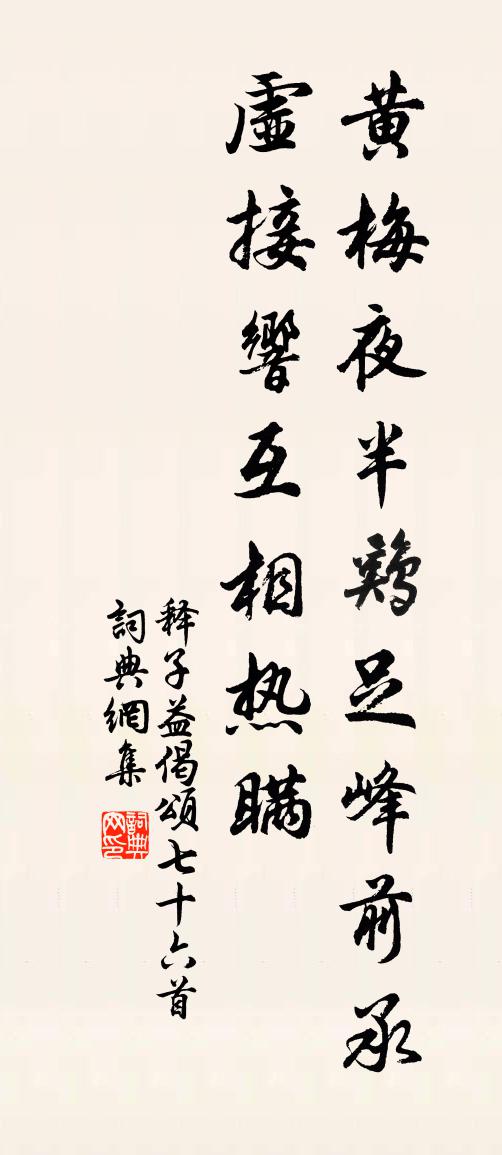 黄梅夜半鷄足峰前承
虛接響互相热瞒
释子益偈頌七十六首
詞典網集
詞典
网印